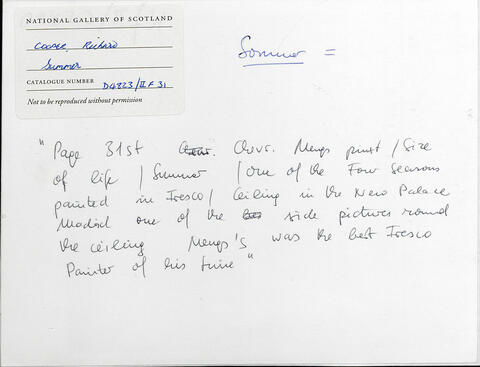 NATIONAL GALLERY OF SCOTLAND
COOPER, Richard
Summer
CATALOGUE NUMBER D4823/II F 31
Not to be reproduced without permission
Sommer =
"Page 31st Chvr. Mengs pinxt / Size
of life / Summer / one of the Four Seasons
painted in Fresco / Ceiling in the New Palace
Madrid one of the side pictures round
the ceiling Mengs's was the best Fresco
Painter of his time"